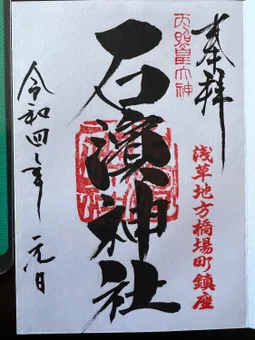 奉拝
浅草地方橋場町鎮座
天照皇大神
石濱神社
令和四年 元日